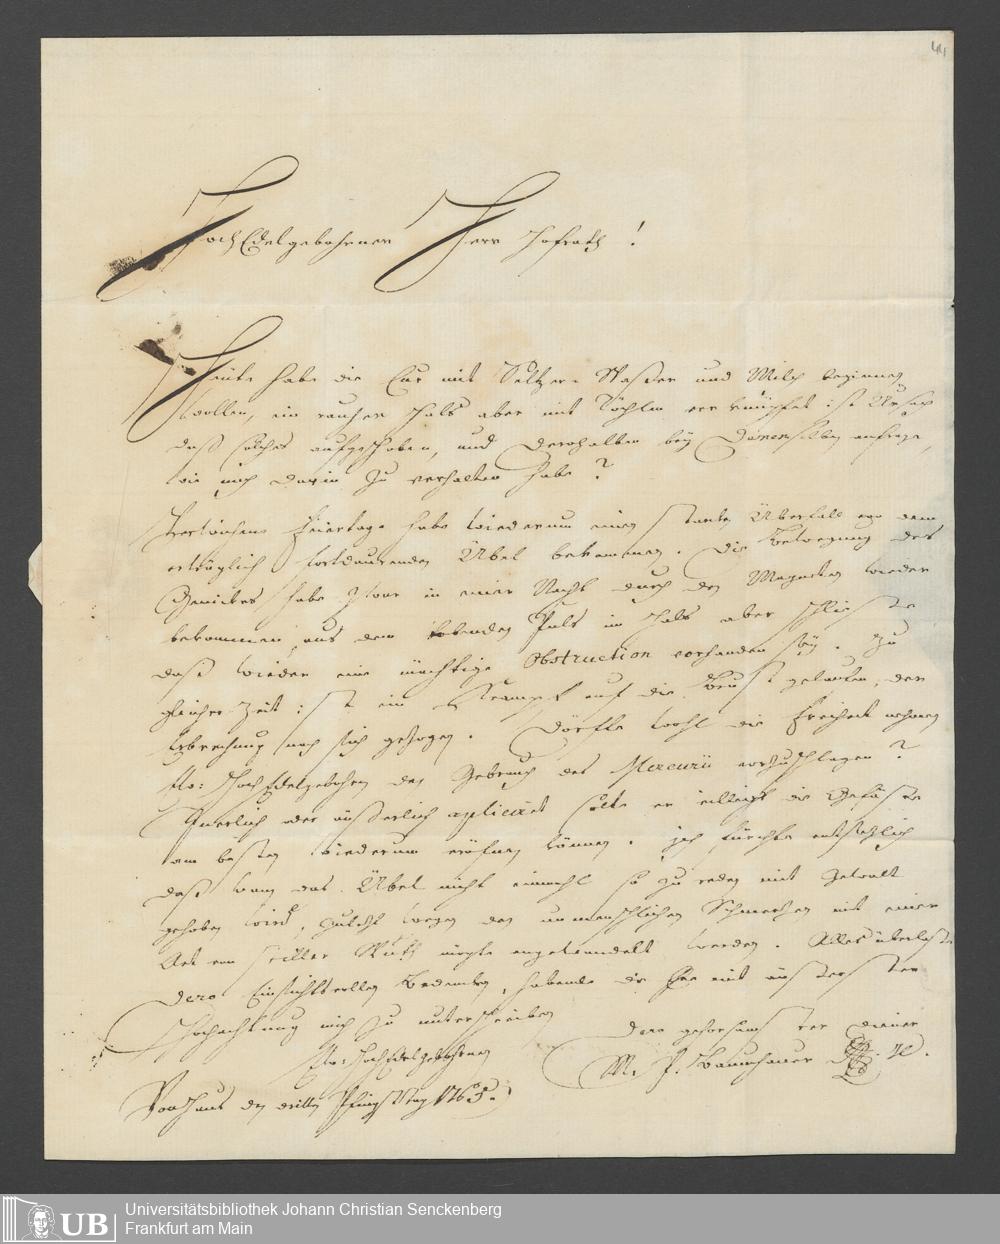 44
HochEdelgebohrner Herr Hofrath!
Heute habe die Cur mit Seltzer Waßer und Milch beginnen
wollen, ein rauher Hals aber mit verknüpfet ist Ursach
daß solches aufgeschoben, und derohalben bey Denenselben anfrage,
wie mich darin zu verhalten habe?
Feiertage habe wiederum einen starken Überfall von dem
fortdaurenden Übel bekommen. Die Bewegung des
Genickes habe zwar in einer Nacht durch den wieder
bekommen, aus dem tobenden Puls im Hals aber schließe
daß wieder eine mächtige Obstruction vorhanden sey. Zu
gleicher Zeit ist ein Krampf auf die Brust gekommen, der
Erbrechung nach sich gezogen. Dörffte wohl die Freiheit nehmen
Ew: HochEdelgebohren den Gebrauch des Mercurii vorzuschlagen?
Innerlich oder äußerlich applicirt solte er vielleicht die Gefäße
am besten wiederum eröfnen können. Ich fürchte entsetzlich
daß wann das Übel nicht einmahl so zu reden mit Gewalt
gehoben wird, zuletzt wegen den unmenschlichen Schmerzen mit einer
Art von stiller Wuth möchte angewandelt werden. Alles überlaße
Dero Einsichtsvollen Bedencken, habende die Ehre mit äußerster
Hochachtung mich zu unterschreiben
Ew: HochEdelgebohren
Dero gehorsamster Diener
M. J.
den dritten Pfingsttag 1765.
Universitätsbibliothek Johann Christian Senckenberg
Frankfurt am Main
UB